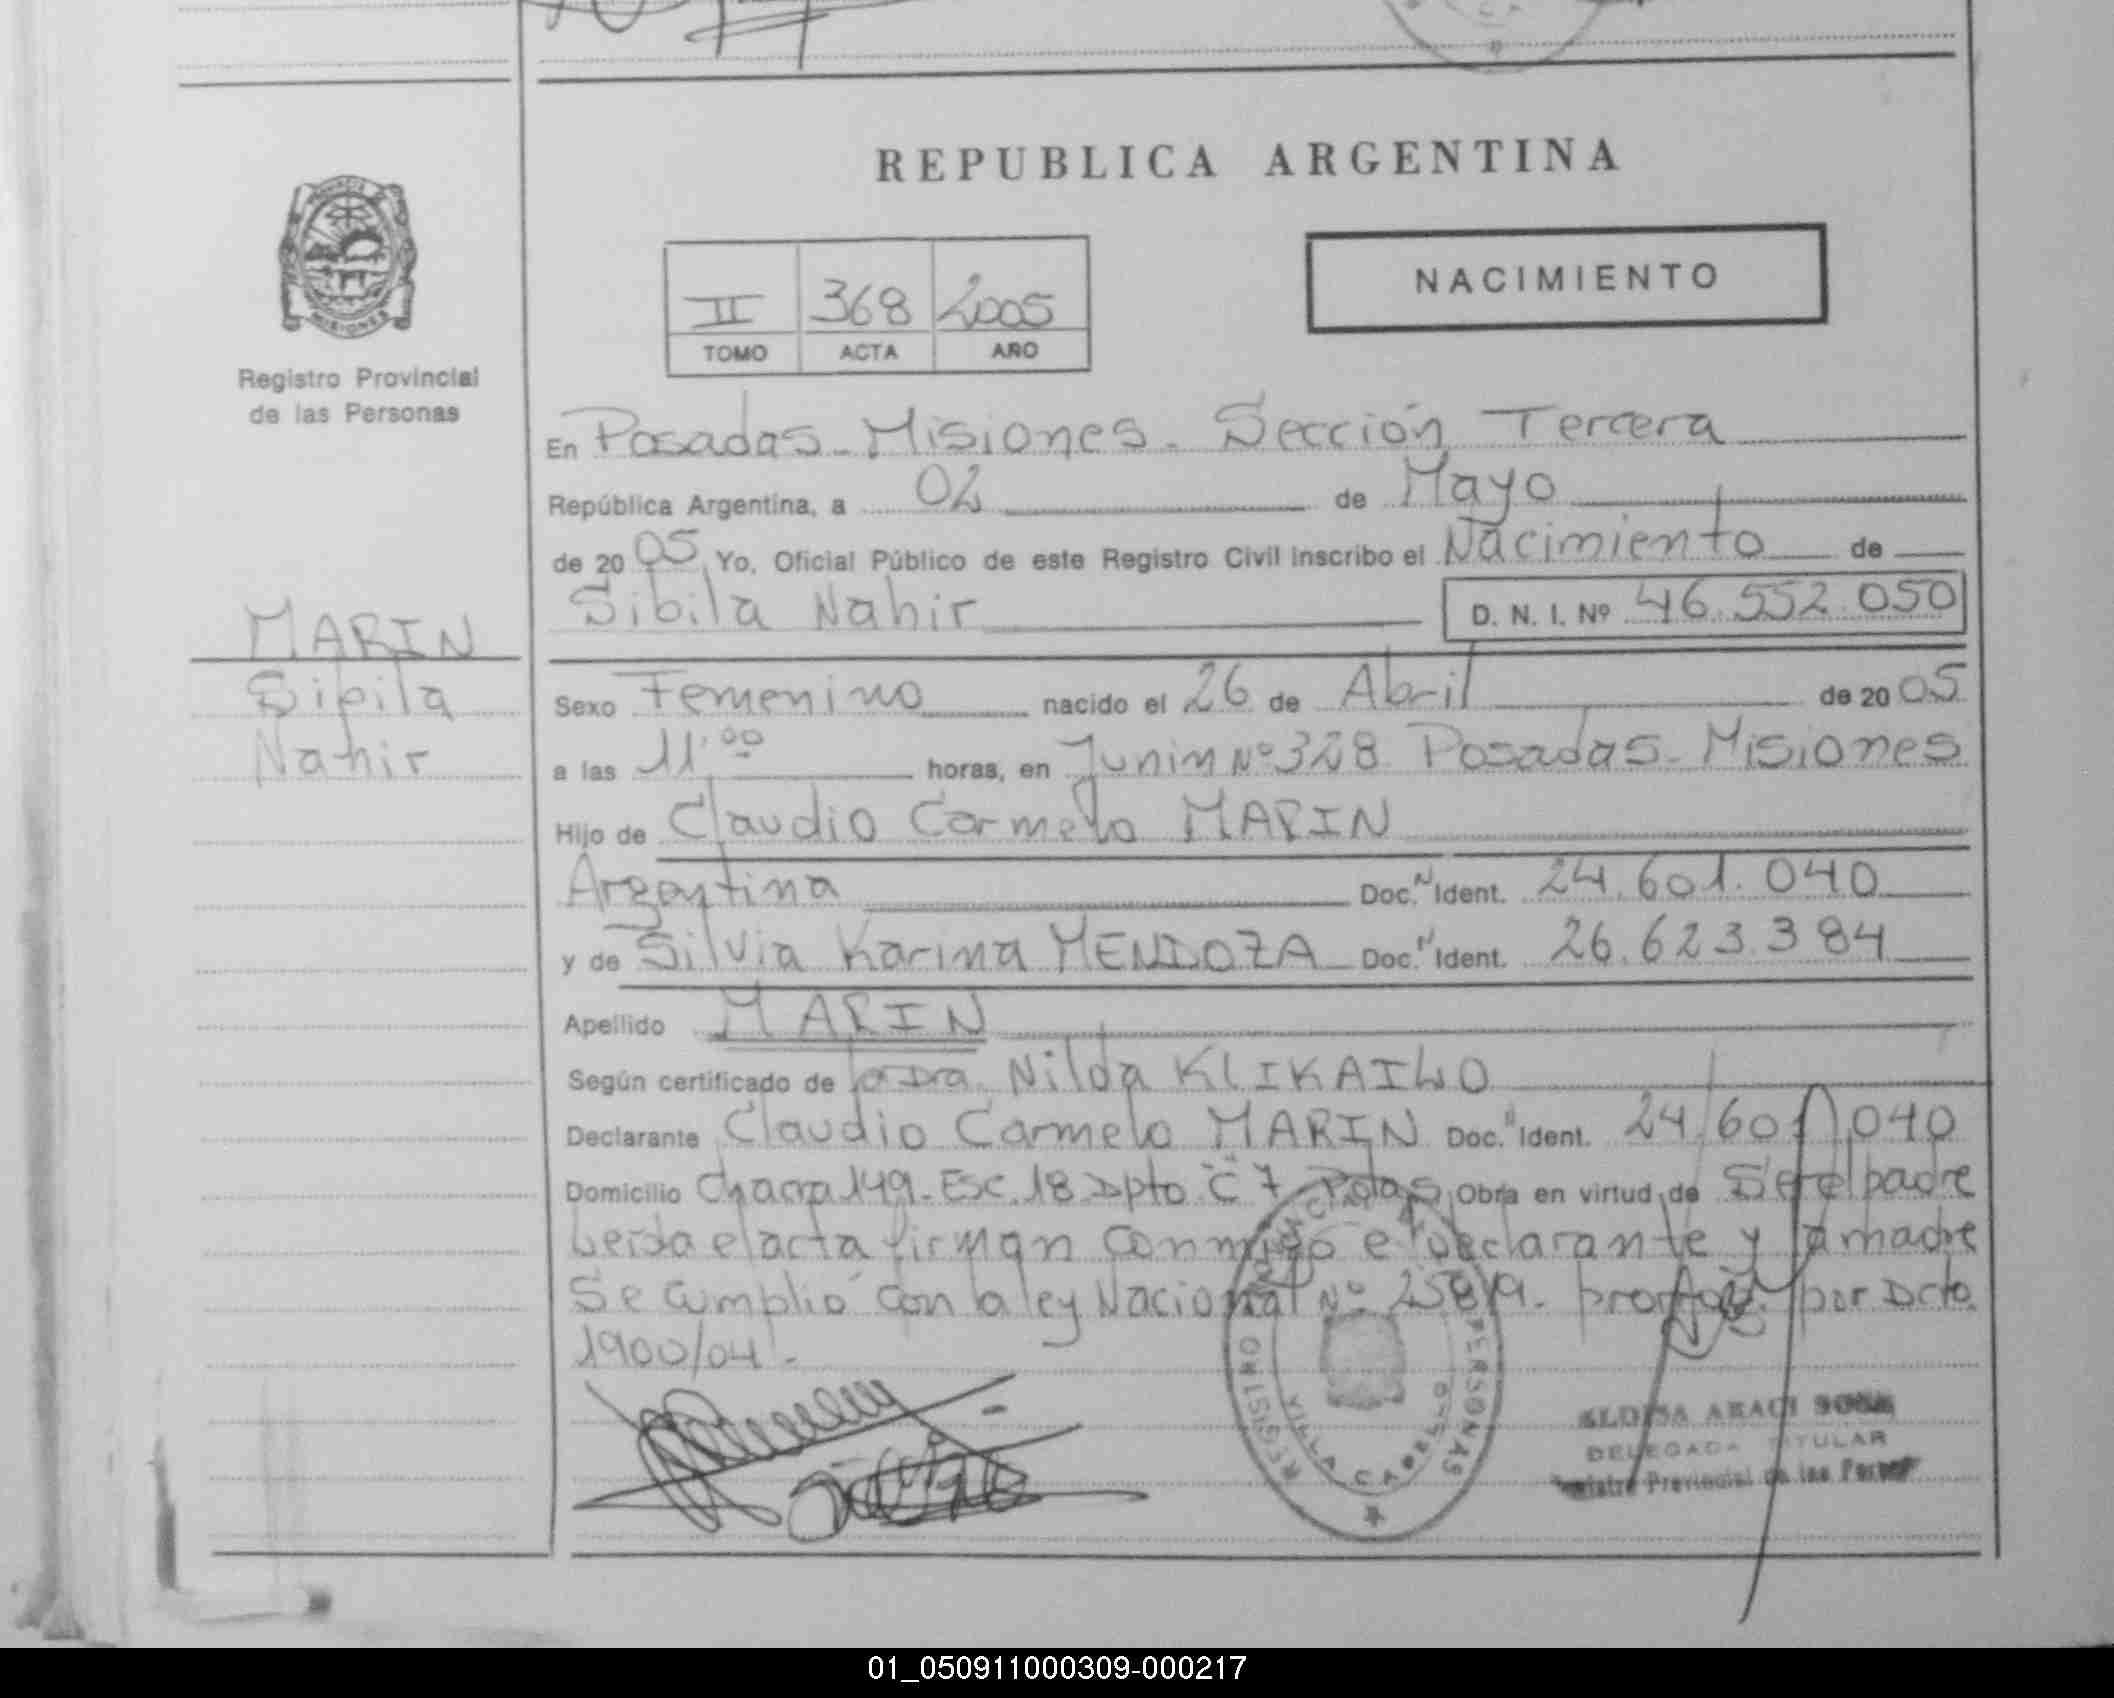 REPUBLICA ARGENTINA
II 368 2005
TOMO ACTA AÑO
NACIMIENTO
PROVINCIA DE
MISIONES
Registro Provincial
de las Personas
MARIN
Sibila
Nahir
En Posadas - Misiones - Sección Tercera
República Argentina, a 02 de Mayo
de 2005 Yo, Oficial Público de este Registro Civil inscribo el Nacimiento de
Sibila Nahir D. N. I. Nº 46.552.050
Sexo Femenino nacido el 26 de Abril de 2005
a las 11:00 horas, en Junin Nº 328 Posadas - Misiones
Hijo de Claudio Carmelo MARIN
Argentina Doc. Ident. 24.601.040
y de Silvia Karina MENDOZA Doc. Ident. 26.623.384
Apellido MARIN
Según certificado de la Dra. Nilda KLIKAILO
Declarante Claudio Carmelo MARIN Doc. Ident. 24.601.040
Domicilio Chacra 149 - Esc. 18 Dpto "C" 7 Pdas Obra en virtud de Ser el padre
Leida el acta firman conmigo el declarante y la madre
Se cumplió con la ley Nacional Nº 25819 - por Dcto.
1900/04 -
REGISTRO PROVINCIAL PERSONAS
VILLA CABELLO
ELOISA ARACI SOSA
DELEGADA TITULAR
Registro Provincial de las Personas
01_050911000309-000217